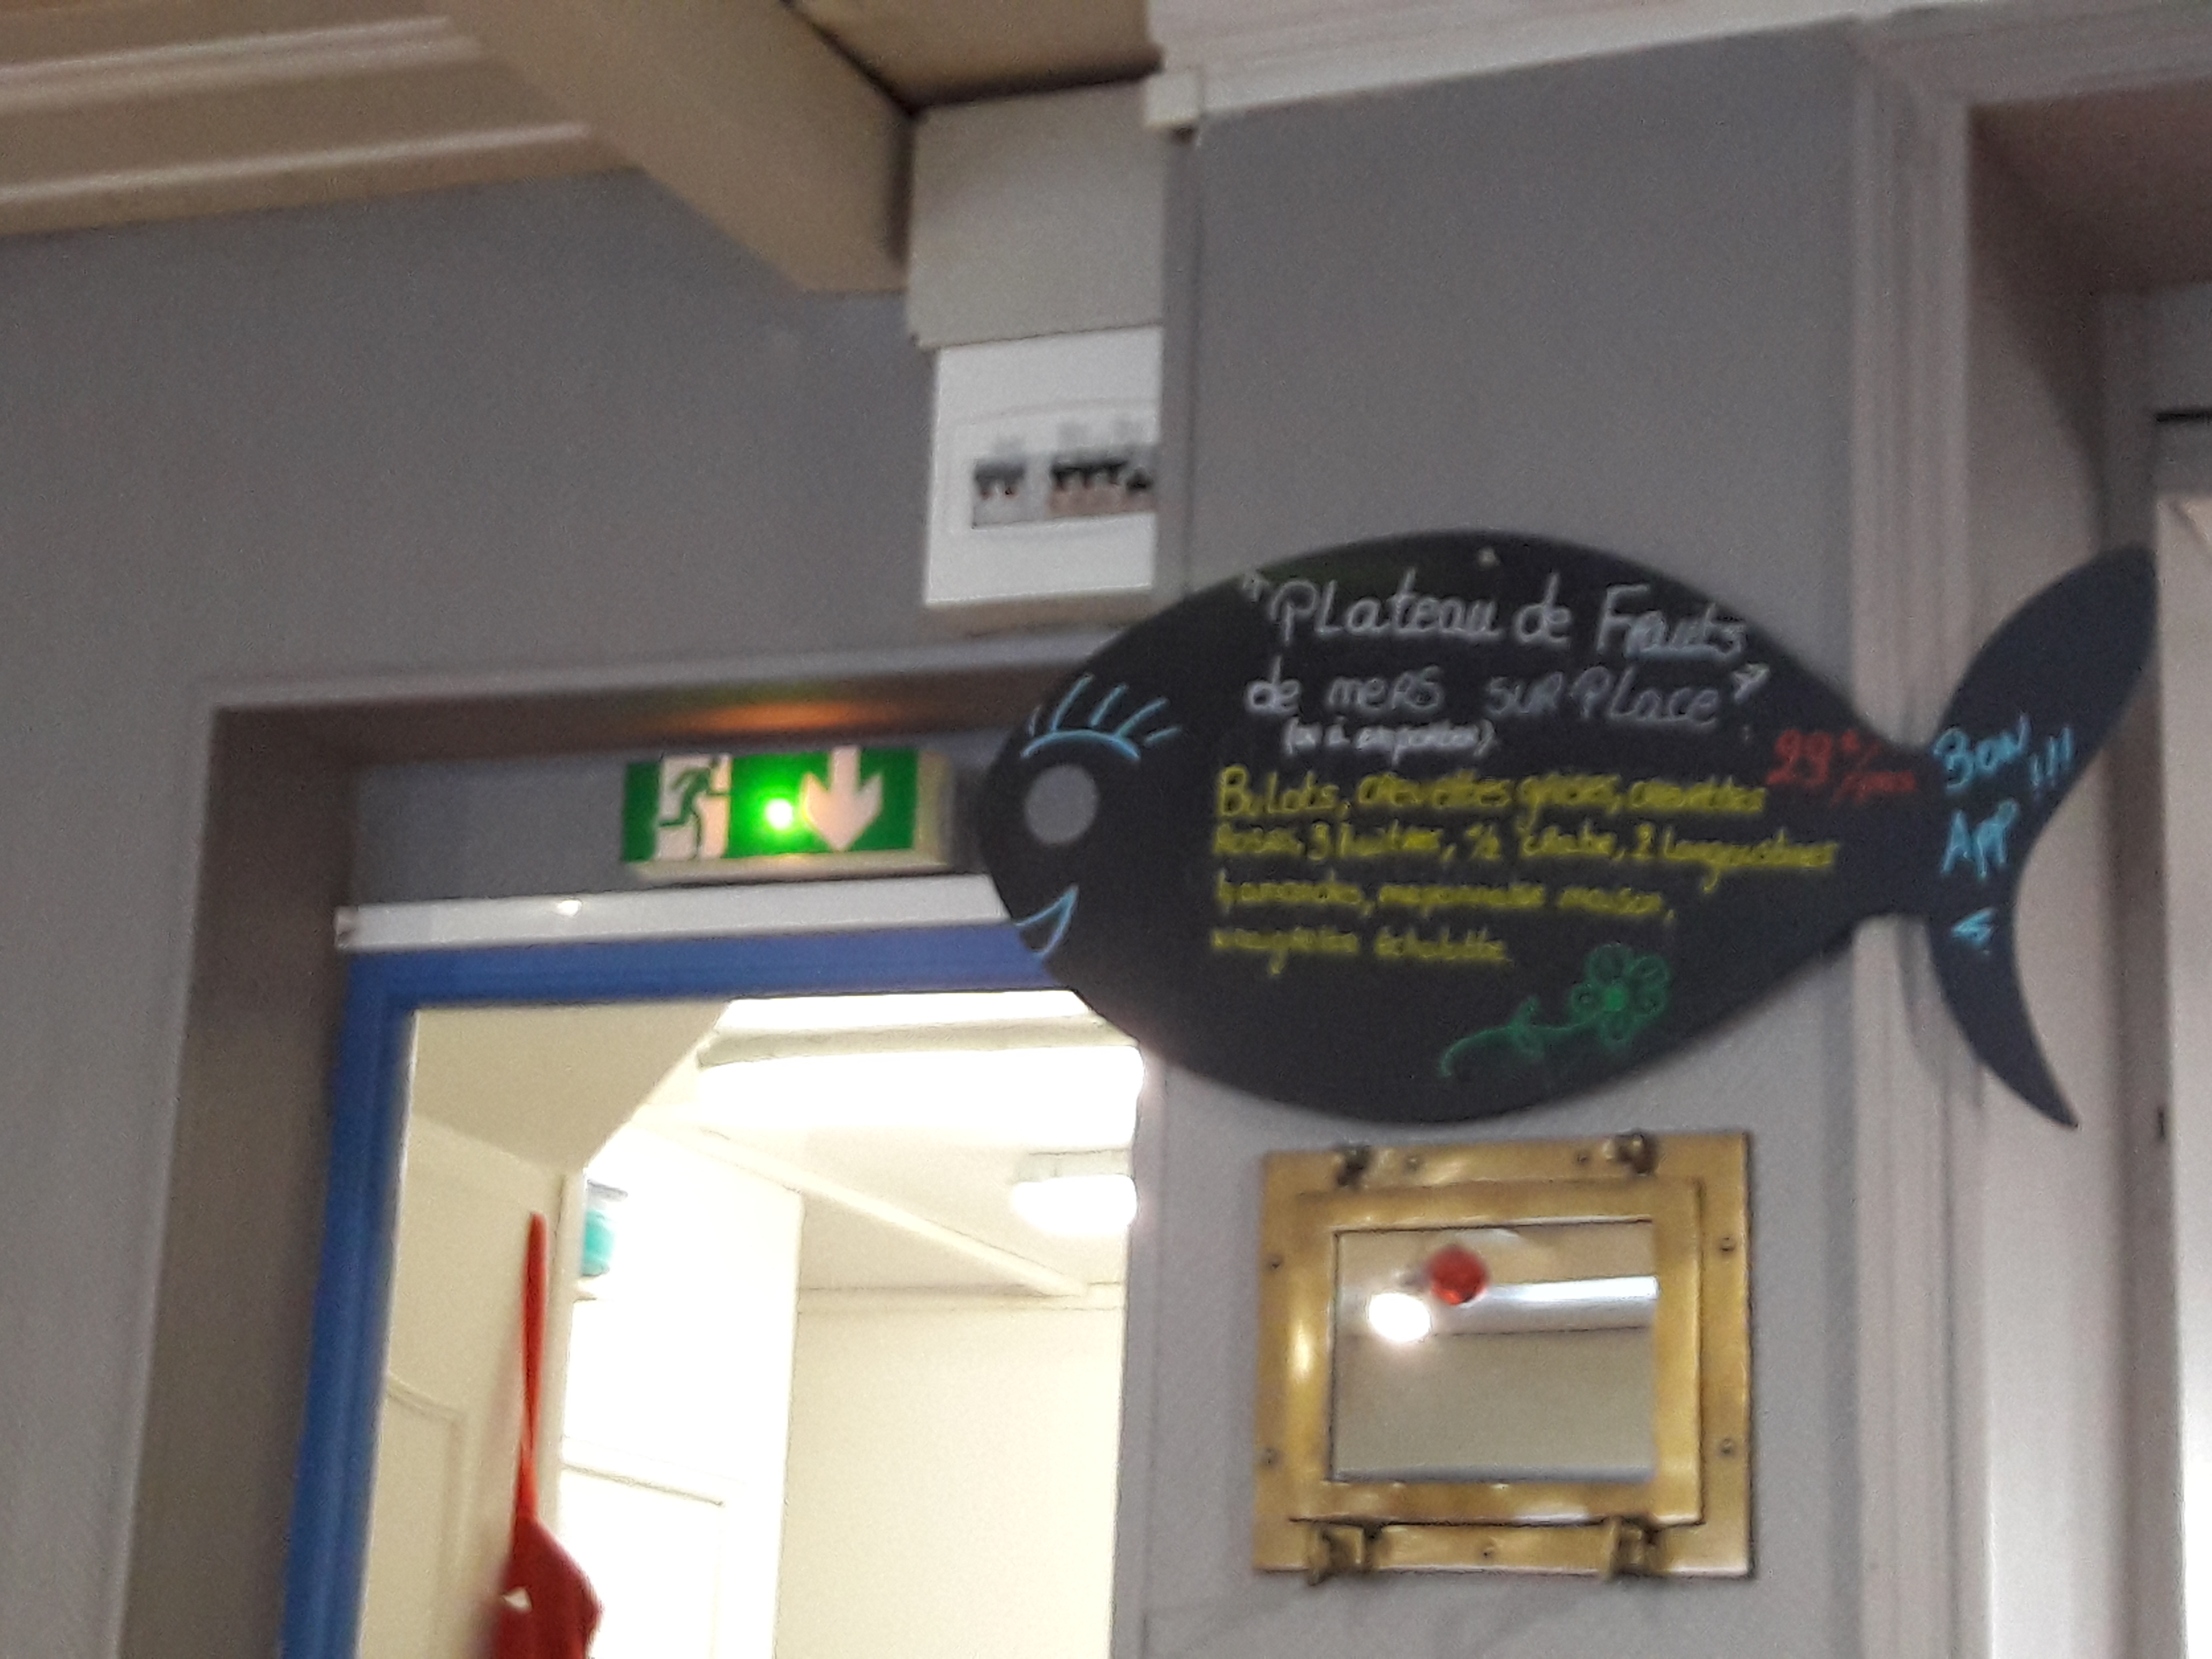 "Plateau de Fruits
de mers sur Place"
(ou à emporter)
29€/pers
Bulots, crevettes grises, crevettes
Roses, 3 huitres, 1/2 crabe, 2 langoustines
4 amandes, mayonnaise maison,
vinaigrette échalotte.
BON !!!
APP